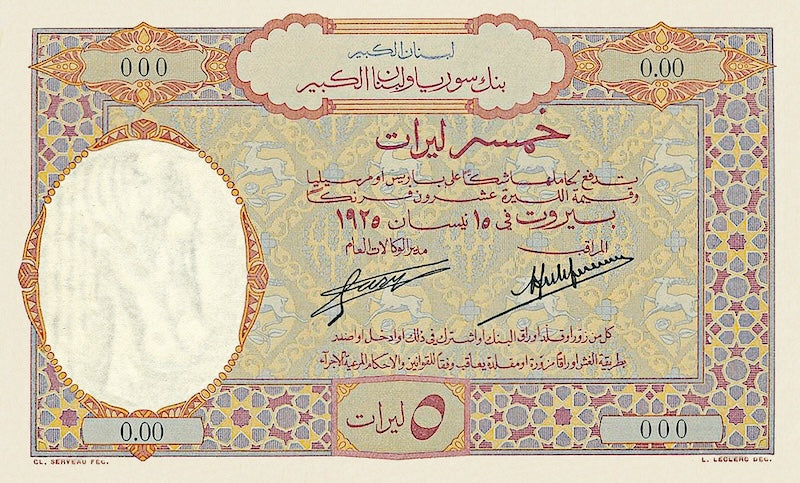 لبنان الكبير
بنك سوريا ولبنان الكبير
000
0.00
خمس ليرات
تدفع لحاملها شكا على باريس او مرسيليا
وقيمة الليرة عشرون فرنكا
بيروت في ١٥ نيسان ١٩٢٥
المراقب
مدير الوكالات العام
كل من زور او قلد اوراق البنك او اشترك في ذلك او ادخل او اصدر
بطريقة الغش اوراقا مزورة او مقلدة يعاقب وفقا للقوانين والاحكام المرعية الاجراء
0.00
٥ ليرات
000
CL. SERVEAU FEC.
L. LECLERC DEC.